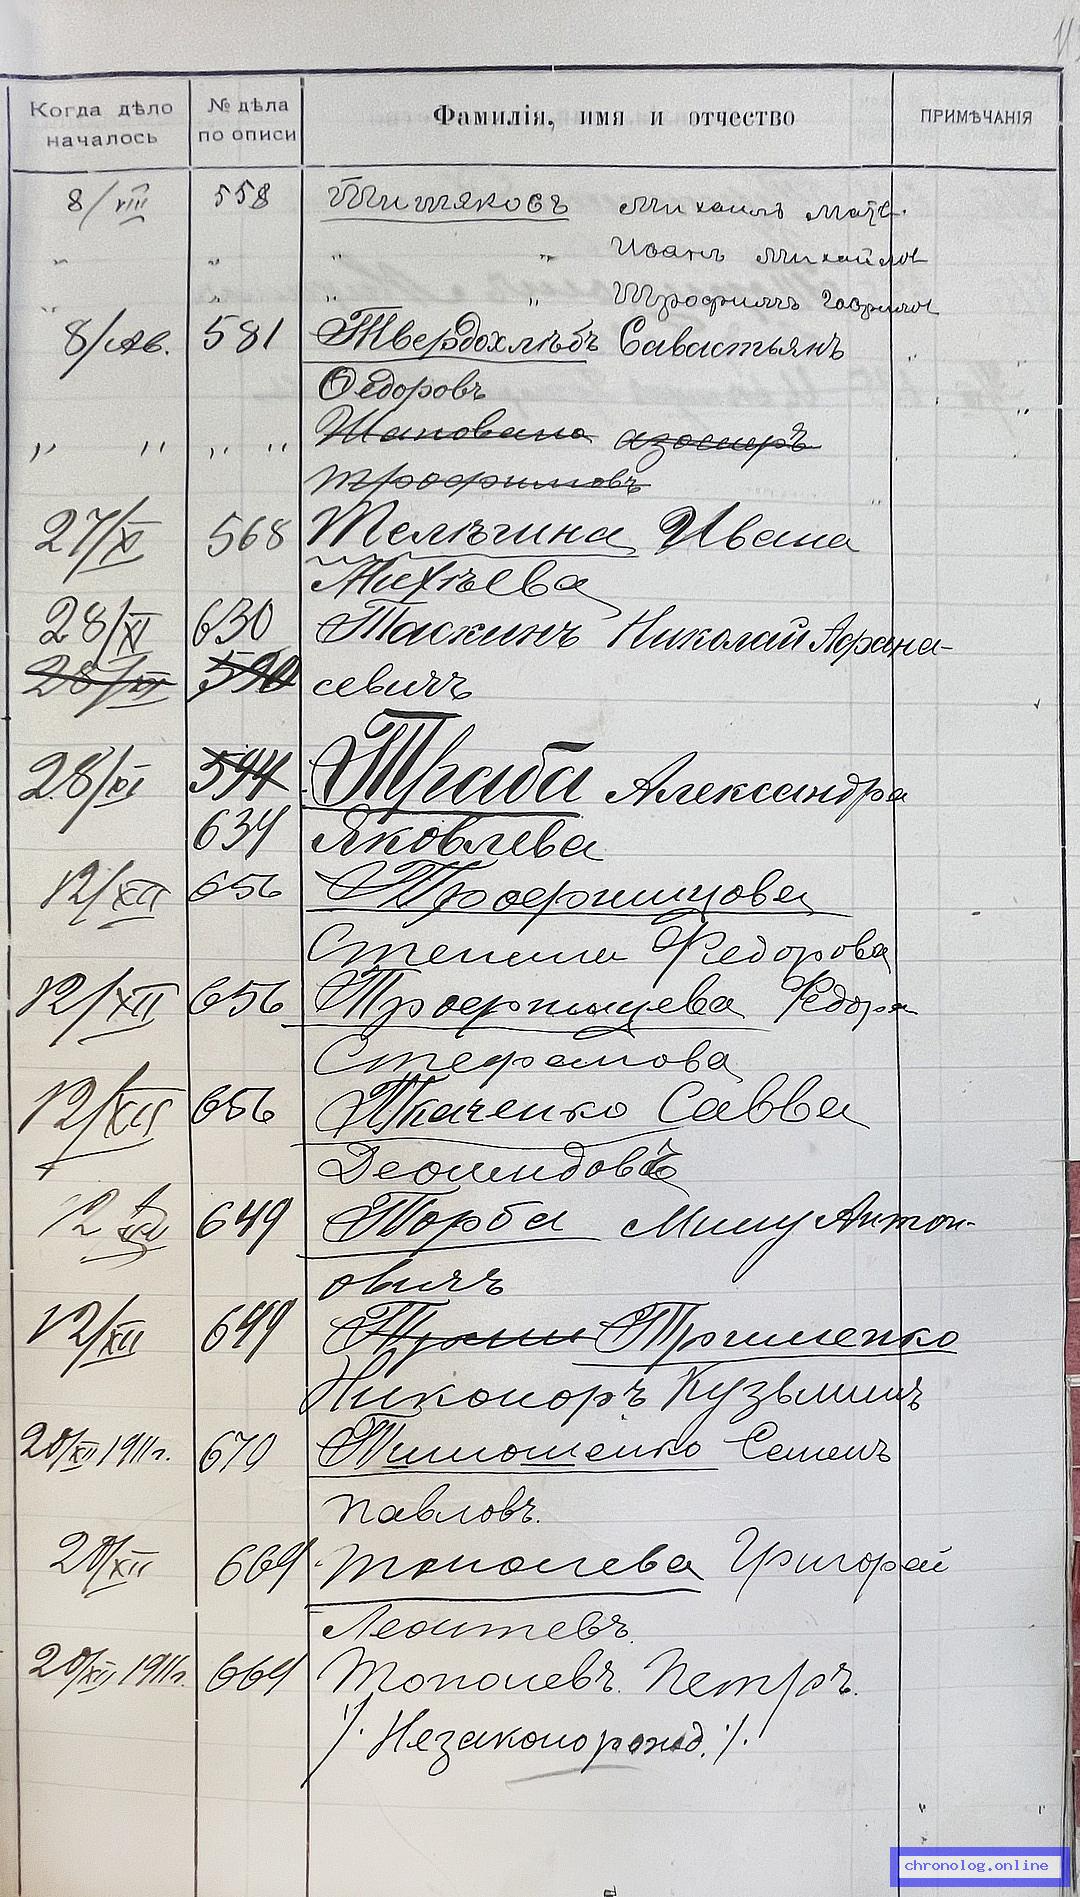 Когда дѣло началось № дѣла по описи Фамилія, имя и отчество ПРИМѢЧАНІЯ
8/VIII 558 Тишяковъ Михаилъ Матв.
" " " " Иванъ Михайлов
" " " " Трофимъ Гаврилов
8/Ав. 581 Твердохлѣбъ Савастьянъ
Ѳедоровъ
" " " "
Трофимовъ
27/X 568 Телѣгина Ивана
Михѣева
28/XI 630 Таскинъ Николай Афана-
28/XI 590 севичъ
28/XI 594 Траба Александра
634 Яковлева
12/XII 656 Трофимцова
Степана Федорова
12/XII 656 Трофимцева Федора
Стефанова
12/XII 656 Ткаченко Савва
649 Торба Антон-
овичъ
12/XII 649 Тришенко
Никоноръ Кузьминъ
20/XII 1911г. 670 Тимошенко Семенъ
Павловъ.
20/XII 669 Тополева Григорай
Леонтевъ.
20/XII 1911г. 669 Тополевъ. Петръ.
/. Незаконорожд. /.
chronolog.online